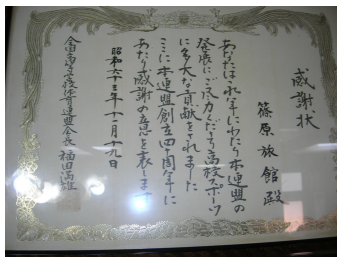 感謝状
篠原旅館殿
あなたは永年にわたり本連盟の
発展にご尽力くださり高校スポーツ
に多大な貢献をされました
ここに本連盟創立四十周年に
あたり感謝の意を表します
昭和六十三年十一月十九日
全国高等学校体育連盟会長 福田満雄